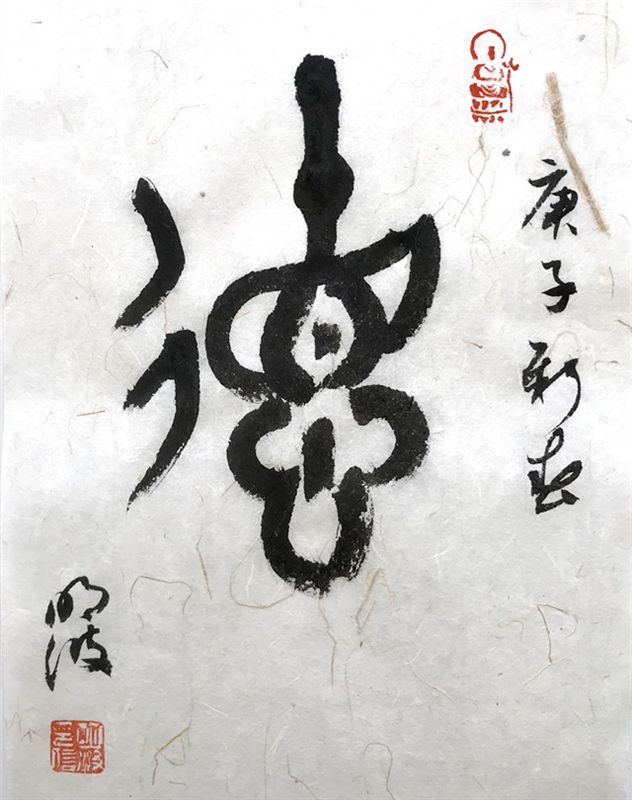 庚子新春
德
明波